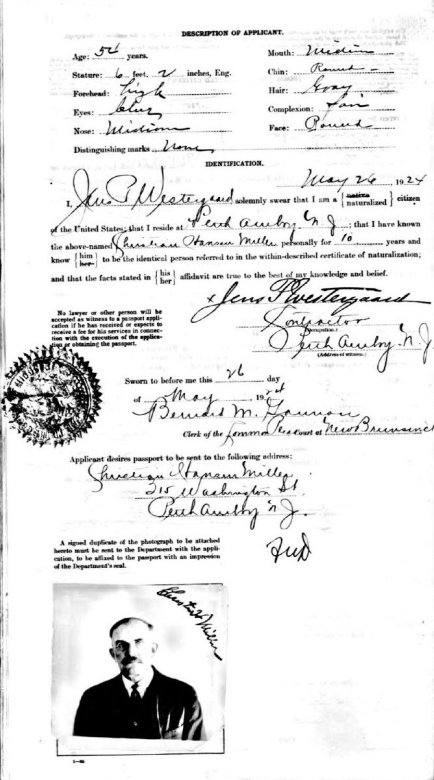 DESCRIPTION OF APPLICANT.
Age: 54 years.
Mouth: Midium
Stature: 6 feet, 2 inches, Eng.
Chin: Round
Forehead: high
Hair: Gray
Eyes: blue
Complexion: Fair
Nose: Midium
Face: Round
Distinguishing marks None
IDENTIFICATION.
May 26, 1924
I, Jens P Westergaard, solemnly swear that I am a {native naturalized} citizen
of the United States; that I reside at Perth Amboy N J; that I have known
the above-named Christian Hansen Miller personally for 10 years and
know {him her} to be the identical person referred to in the within-described certificate of naturalization;
and that the facts stated in {his her} affidavit are true to the best of my knowledge and belief.
x Jens P Westergaard
Contractor
(Occupation.)
Perth Amboy N. J
(Address of witness.)
No lawyer or other person will be
accepted as witness to a passport appli-
cation if he has received or expects to
receive a fee for his services in connec-
tion with the execution of the applica-
tion or obtaining the passport.
Sworn to before me this 26 day
of May, 1924
Bernard M. Gannon
Clerk of the Common Pleas Court at New Brunswick
Applicant desires passport to be sent to the following address:
Christian Hansen Miller
215 Washington St.
Perth Amboy N J.
A signed duplicate of the photograph to be attached
hereto must be sent to the Department with the appli-
cation, to be affixed to the passport with an impression
of the Department's seal.
Christian H Miller